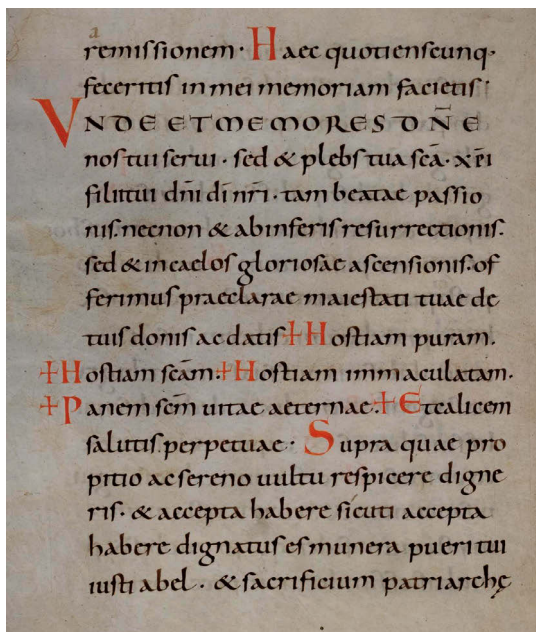 remissionem · Haec quotienscunq·
feceritis in mei memoriam facietis ;
VNDE ET MEMORES DN̄E
nos tui serui · sed & plebs tua scā · xp̄i
filii tui dn̄i dī nr̄i · tam beatae passio
nis · necnon & ab inferis resurrectionis ·
sed & in caelos gloriosae ascensionis · of
ferimus praeclarae maiestati tuae de
tuis donis ac datis + Hostiam puram ·
+ Hostiam scām · + Hostiam immaculatam ·
+ Panem scm̄ uitae aeternae · + Et calicem
salutis perpetuae · Supra quae pro
pitio ac sereno uultu respicere digne
ris · & accepta habere sicuti accepta
habere dignatus es munera pueri tui
iusti abel · & sacrificium patriarchę